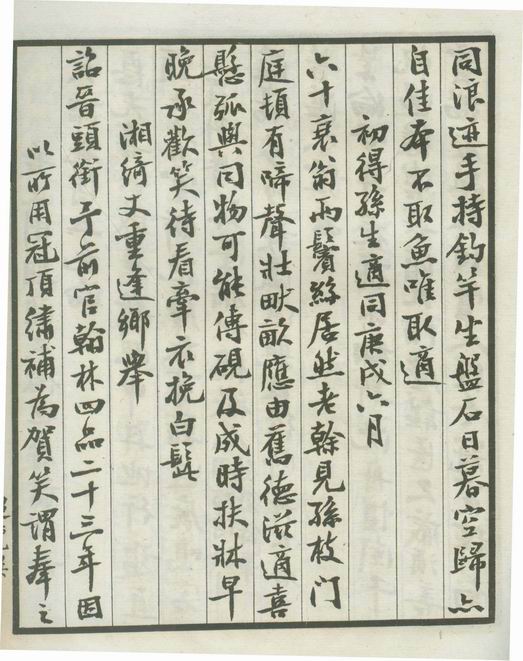 同浪迹手持釣竿坐盤石日暮空歸亦
自佳本不取魚唯取適
初得孫生適同庚戌六月
六十衰翁兩鬢絲居然老榦見孫枝门
庭頓有啼聲壯畎畝應由舊德滋適喜
懸弧與同物可能傳硯及成時扶牀早
晚承歡笑待看牽衣挽白髭
湘綺丈重逢鄉舉
詔晉頭銜予前官翰林四品二十三年因
以所用冠頂繡補為賀笑謂奉之